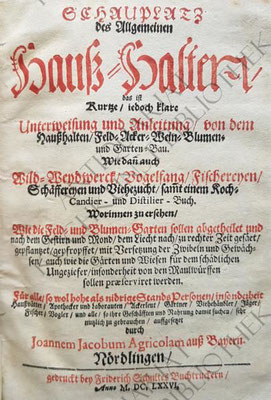 SCHAUPLATZ
des Allgemeinen
Hauß-Halters/
das ist
Kurtze / iedoch klare
Unterweisung und Anleitung / von dem
Haußhalten / Feld- Acker- Wein- Blumen-
und Garten-Bau.
Wie dañ auch
Wild- Weydwerck / Vogelfang / Fischereyen /
Schäffereyen und Viehezucht / samt einem Koch-
Candier- und Distilier-Buch.
Worinnen zu ersehen /
Wie die Feld- und Blumen-Garten sollen abgetheilet und
nach dem Gestirn und Mond / dem Liecht nach / zu rechter Zeit gesäet /
gepflantzet / gepfropffet / mit Versetzung der Zwibeln und Gewäch-
sen / auch wie die Gärten und Wiesen für dem schädlichen
Ungeziefer / insonderheit von den Maulwürffen
sollen præserviret werden.
Für alle / so wol hohe als nidrige Stands Personen / insonderheit
Haußvätter / Apothecker und Laboranten / Ackersleut / Gärtner / Viehehändler / Jäger /
Fischer / Vogler / und alle / so ihre Geschäfften und Nahrung damit suchen / sehr
nutzlich zu gebrauchen / auffgesetzet
durch
Joannem Jacobum Agricolam auß Bayern.
Nördlingen /
gedruckt bey Friderich Schultes Buchtruckern /
Anno M. DC. LXXVI.